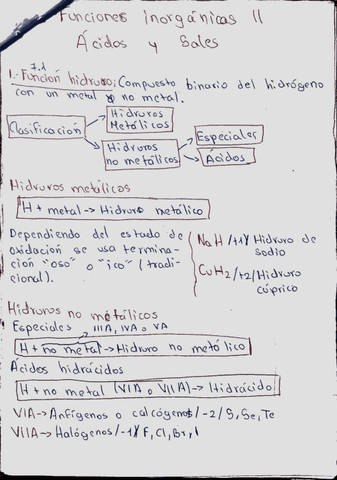 Funciones inorgánicas II
Ácidos y Sales
7.1
1. Función hidruro: Compuesto binario del hidrógeno
con un metal y no metal.
Clasificación
Hidruros
Metálicos
Hidruros
no metálicos
Especiales
Ácidos
Hidruros metálicos
H + metal → Hidruro metálico
Dependiendo del estado de
oxidación se usa termina-
ción "oso" o "ico" (tradi-
cional).
NaH /+1/ Hidruro de
sodio
CuH2 /+2/ Hidruro
cúprico
Hidruros no metálicos
Especiales IIIA, IVA o VA
H + no metal → Hidruro no metólico
Ácidos hidrácidos
H + no metal (VIA o VIIA) → Hidrácido
VIA → Anfígenos o calcógenos /-2/ S, Se, Te
VIIA → Halógenos /-1/ F, Cl, Br, I